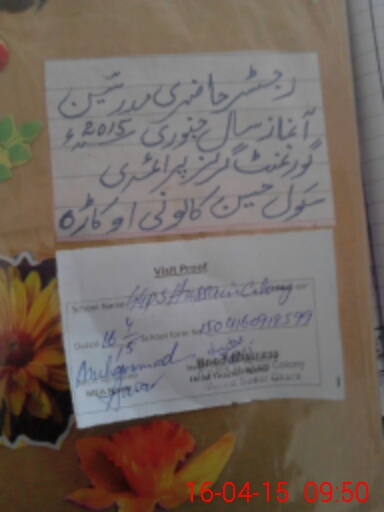 رجسٹر حاضری مدرسین
آغاز سال جنوری 2015ء
گورنمنٹ گرلز پرائمری
سکول حسین کالونی اوکاڑہ
Visit Proof
School Name GGPS Hussain Colony
Date: 16/4/15 School form No 1504160918599
Muhammad
MEA Name
Head Mistress
Colony
16-04-15 09:50